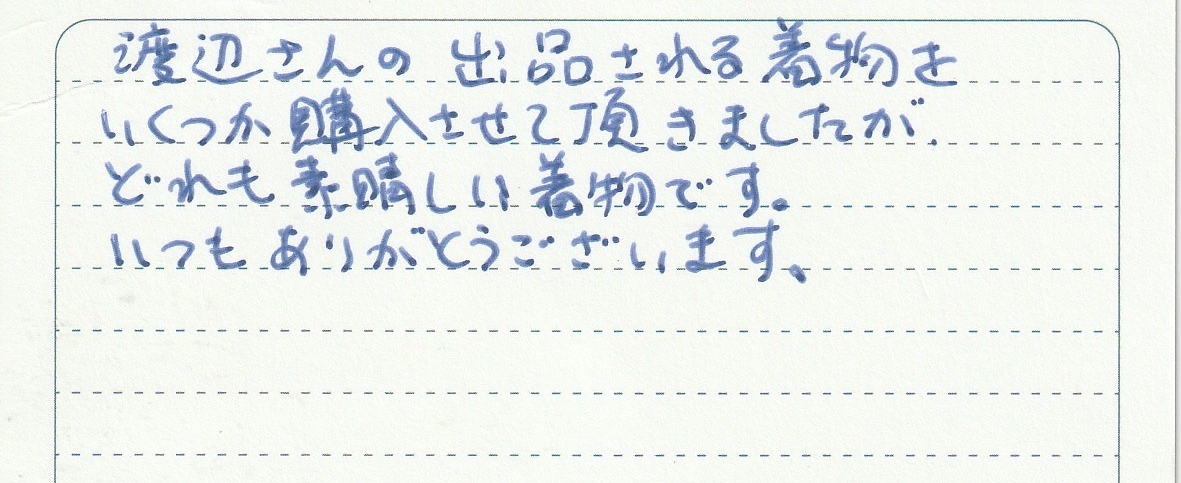 渡辺さんの出品される着物を
いくつか購入させて頂きましたが、
どれも素晴しい着物です。
いつもありがとうございます。